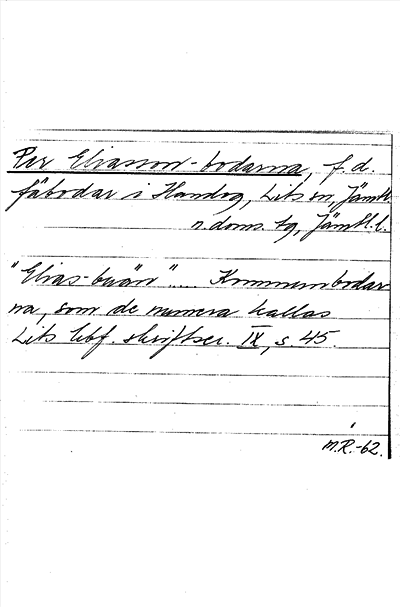 Per Eliasson-bodarna, f.d.
fäbodar i Handog, Lits sn, Jämtl.
n. doms. tg, Jämtl. l.
"Elias-buän" ..... Kommunbodar
na, som de numera kallas
Lits hbf. skriftser. IX, s. 45.
M.R.-62.